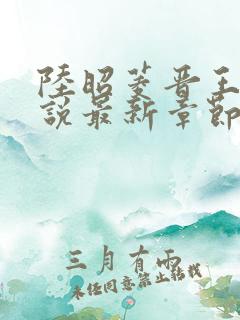 陸昭菱晋王
說最新章節
三月有雨
未经同意禁止转载